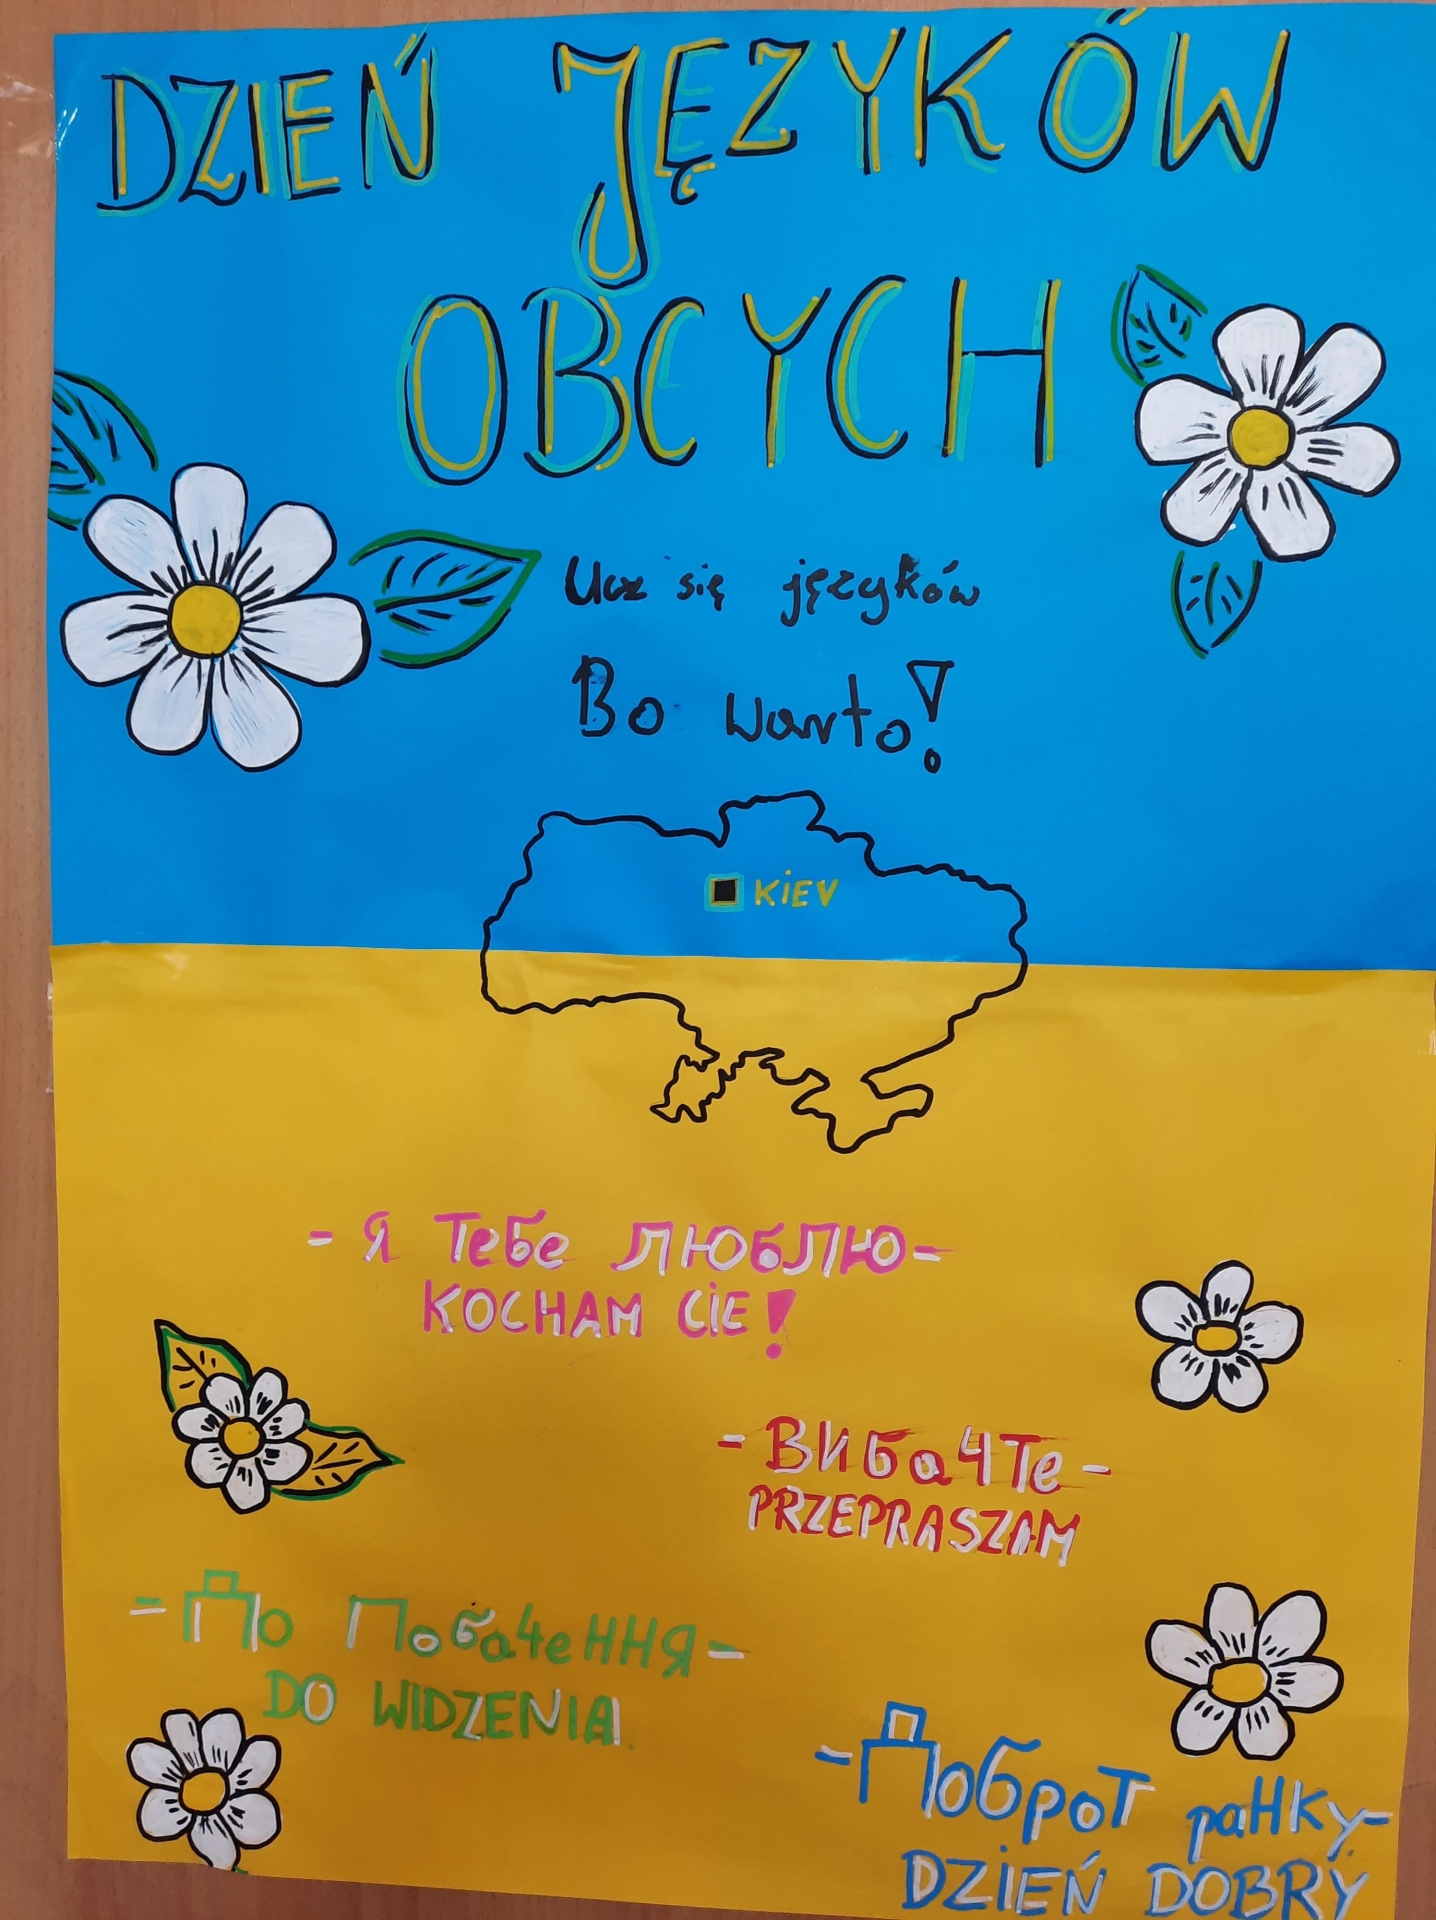 DZIEŃ JĘZYKÓW
OBCYCH
Ucz się języków
Bo warto!
KiEV
- Я Тебе ЛЮБЛЮ -
KOCHAM CiE!
- ВИбаЧТе -
PRZEPRASZAM
- До ПобаЧеННЯ -
DO WIDZENIA
- ДоброТ раНКу -
DZiEŃ DOBRY